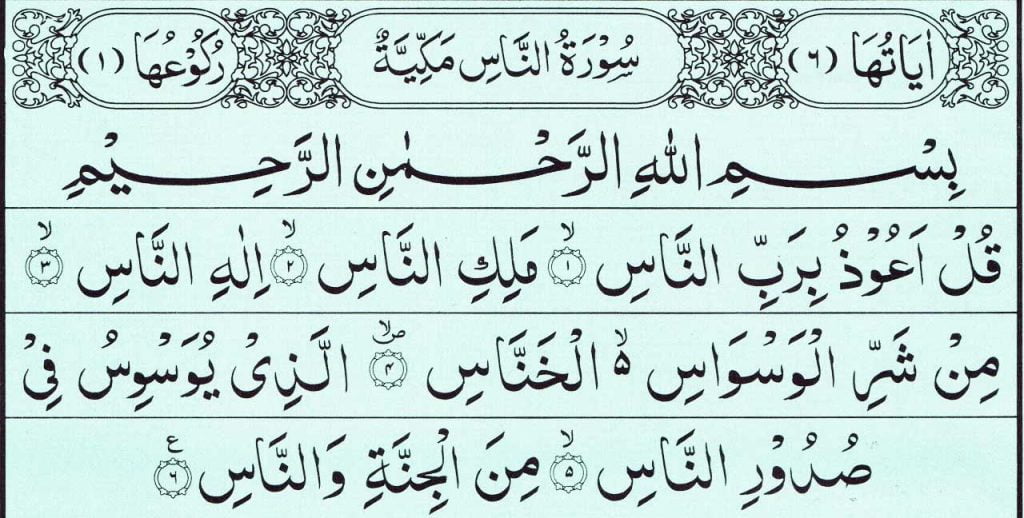 اٰيَاتُهَا (٦) سُوْرَةُ النَّاسِ مَكِّيَّةٌ رُكُوْعُهَا (١)
بِسْمِ اللهِ الرَّحْمٰنِ الرَّحِيْمِ
قُلْ اَعُوْذُ بِرَبِّ النَّاسِ ۙ‏﴿۱﴾ مَلِكِ النَّاسِ ۙ‏﴿۲﴾ اِلٰهِ النَّاسِ ۙ‏﴿۳﴾
مِنْ شَرِّ الْوَسْوَاسِ ۙ الْخَنَّاسِ ۪ۙ‏﴿۴﴾ الَّذِىْ يُوَسْوِسُ فِىْ
صُدُوْرِ النَّاسِ ۙ‏﴿۵﴾ مِنَ الْجِنَّةِ وَالنَّاسِ ﴿۶﴾ ع